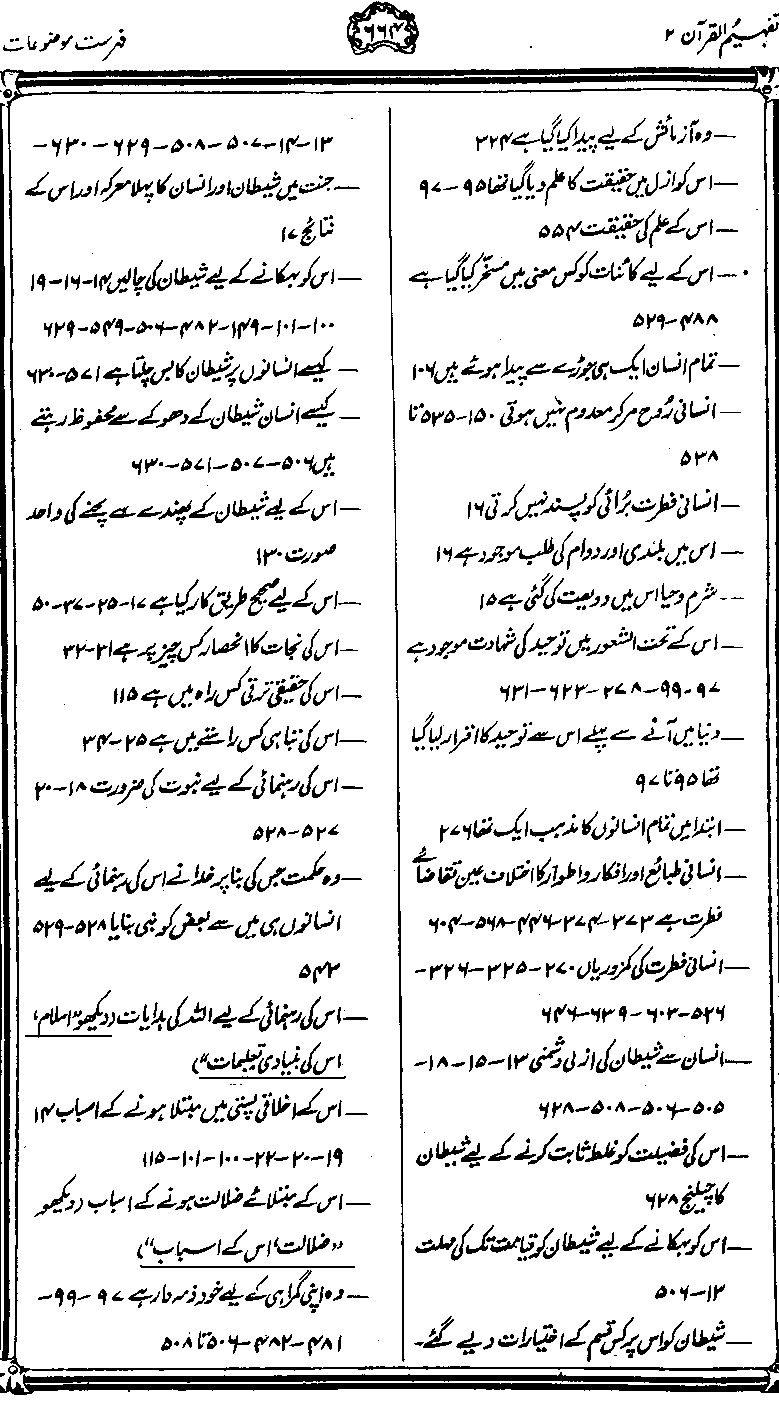 تفہیم القرآن ۲
۶۶۴
فہرست موضوعات
— وہ آزمائش کے لیے پیدا کیا گیا ہے ۳۲۴
— اس کو ازل میں حقیقت کا علم دیا گیا تھا ۹۵ - ۹۷
— اس کے علم کی حقیقت ۵۵۴
— اس کے لیے کائنات کو کس معنی میں مسخّر کیا گیا ہے
۴۸۸ - ۵۲۹
— تمام انسان ایک ہی جوڑے سے پیدا ہوئے ہیں ۱۰۶
— انسانی رُوح مر کر معدوم نہیں ہوتی ۱۵۰ - ۵۳۵ تا
۵۳۸
— انسانی فطرت بُرائی کو پسند نہیں کرتی ۱۶
— اس میں بلندی اور دوام کی طلب موجود ہے ۱۶
— شرم و حیا اس میں ودیعت کی گئی ہے ۱۵
— اس کے تحت الشعور میں توحید کی شہادت موجود ہے
۹۷ - ۹۹ - ۲۷۸ - ۶۲۳ - ۶۳۱
— دنیا میں آنے سے پہلے اس سے توحید کا اقرار لیا گیا
تھا ۹۵ تا ۹۷
— ابتدا میں تمام انسانوں کا مذہب ایک تھا ۲۷۶
— انسانی طبائع اور افکار و اطوار کا اختلاف عین تقاضائے
فطرت ہے ۳۷۳ - ۳۷۴ - ۴۴۶ - ۵۶۸ - ۶۰۴
— انسانی فطرت کی کمزوریاں ۲۷۰ - ۳۲۵ - ۳۲۶ -
۵۲۶ - ۶۰۳ - ۶۳۹ - ۶۴۶
— انسان سے شیطان کی ازلی دشمنی ۱۳ - ۱۵ - ۱۸ -
۵۰۵ - ۵۰۶ - ۵۰۸ - ۶۲۸
— اس کی فضیلت کو غلط ثابت کرنے کے لیے شیطان
کا چیلنج ۶۲۸
— اس کو بہکانے کے لیے شیطان کو قیامت تک کی مہلت
۱۳ - ۵۰۶
— شیطان کو اس پر کس قسم کے اختیارات دیے گئے -
۱۳ - ۱۴ - ۵۰۷ - ۵۰۸ - ۶۲۹ - ۶۳۰ -
— جنت میں شیطان اور انسان کا پہلا معرکہ اور اس کے
نتائج ۱۷
— اس کو بہکانے کے لیے شیطان کی چالیں ۱۴ - ۱۶ - ۱۹
۱۰۰ - ۱۰۱ - ۱۴۹ - ۴۸۲ - ۵۰۶ - ۵۴۹ - ۶۲۹
— کیسے انسانوں پر شیطان کا بس چلتا ہے ۵۷۱ - ۶۳۰
— کیسے انسان شیطان کے دھوکے سے محفوظ رہتے
ہیں ۵۰۶ - ۵۰۷ - ۵۷۱ - ۶۳۰
— اس کے لیے شیطان کے پھندے سے بچنے کی واحد
صورت ۱۳۰
— اس کے لیے صحیح طریق کار کیا ہے ۱۷ - ۲۵ - ۳۷ - ۵۰
— اس کی نجات کا انحصار کس چیز پر ہے ۲۱ - ۳۲
— اس کی حقیقی ترقی کس راہ میں ہے ۱۱۵
— اس کی تباہی کس راستے میں ہے ۲۵ - ۳۴
— اس کی رہنمائی کے لیے نبوت کی ضرورت ۱۸ - ۲۰
۵۲۷ - ۵۲۸
— وہ حکمت جس کی بنا پر خدا نے اس کی رہنمائی کے لیے
انسانوں ہی میں سے بعض کو نبی بنایا ۵۲۸ - ۵۲۹
۵۴۳
— اس کی رہنمائی کے لیے اللہ کی ہدایات (دیکھو "اسلام،
اس کی بنیادی تعلیمات")
— اس کے اخلاقی پستی میں مبتلا ہونے کے اسباب ۱۴
۱۹ - ۲۰ - ۲۲ - ۱۰۰ - ۱۰۱ - ۱۱۵
— اس کے مبتلائے ضلالت ہونے کے اسباب (دیکھو
"ضلالت، اس کے اسباب")
— وہ اپنی گمراہی کے لیے خود ذمہ دار ہے ۹۷ - ۹۹ -
۴۸۱ - ۴۸۲ - ۵۰۶ تا ۵۰۸